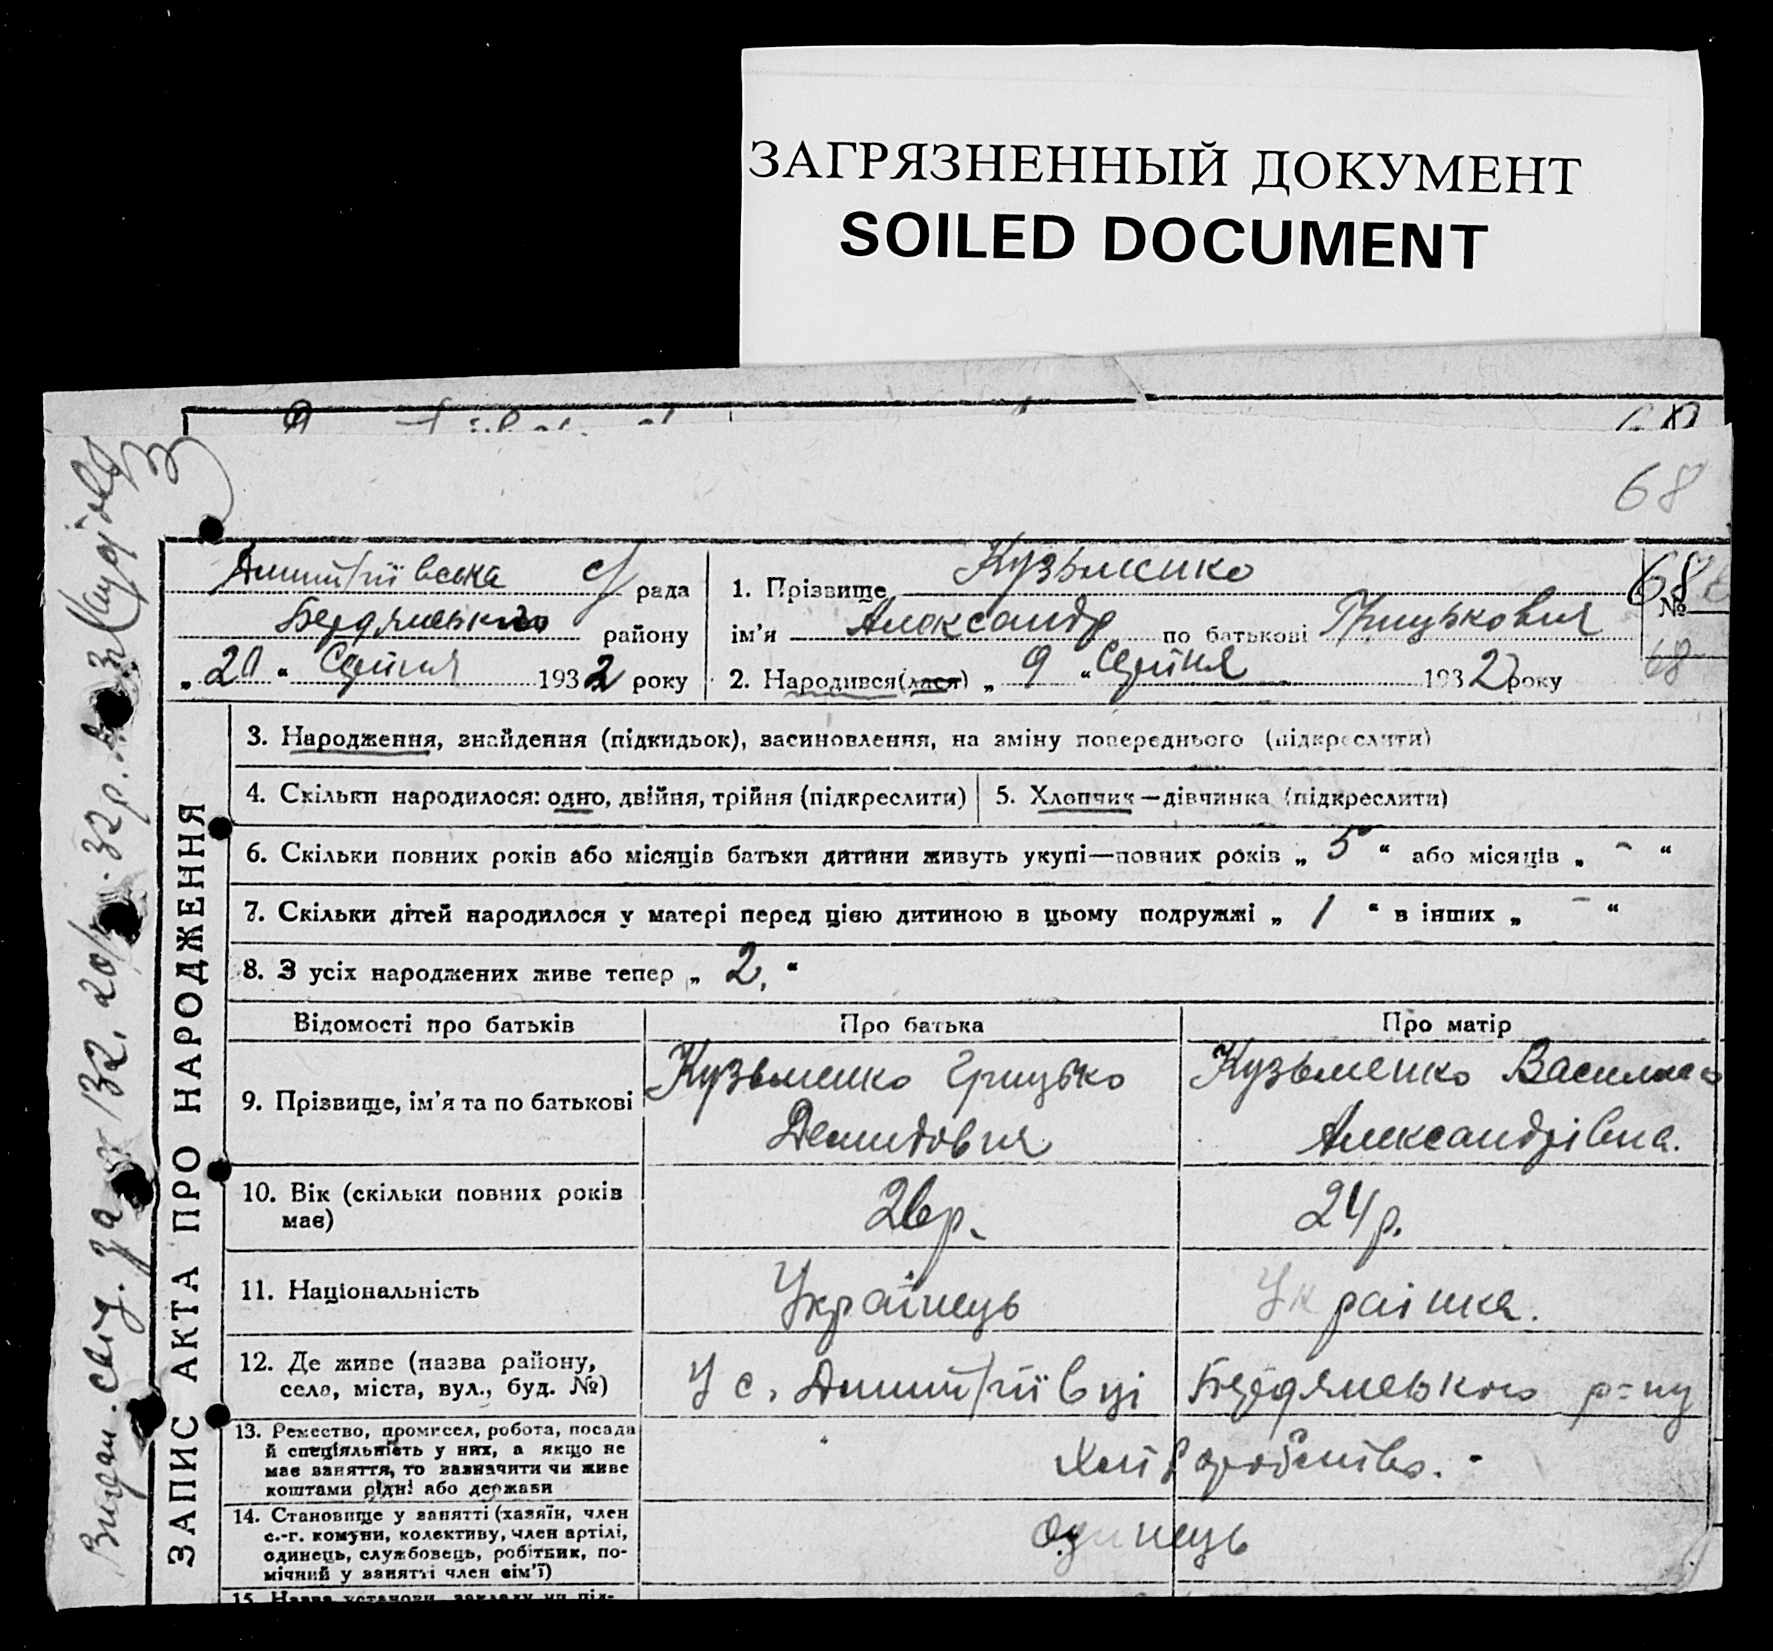 ЗАГРЯЗНЕННЫЙ ДОКУМЕНТ
SOILED DOCUMENT
68
Дмитріївська с/рада
Бердянського району
„ 20 “ Серпня 1932 року
1. Прізвище Кузьменко
ім’я Александр по батькові Грицькович
2. Народився(лася) „ 9 “ Серпня 1932 року
68
№
68
ЗАПИС АКТА ПРО НАРОДЖЕННЯ
3. Народження, знайдення (підкидьок), васиновлення, на зміну попереднього (підкреслити)
4. Скільки народилося: одно, двійня, трійня (підкреслити)
5. Хлопчик—дівчинка (підкреслити)
6. Скільки повних років або місяців батьки дитини живуть укупі—повних років „ 5 “ або місяців „ - “
7. Скільки дітей народилося у матері перед цією дитиною в цьому подружжі „ 1 “ в інших „ - “
8. З усіх народжених живе тепер „ 2. “
Відомості про батьків Про батька Про матір
9. Прізвище, ім’я та по батькові
Кузьменко Грицько
Демидович
Кузьменко Василиса
Александрівна.
10. Вік (скільки повних років
має)
26р.
24р.
11. Національність
Українець
Украінка.
12. Де живе (назва району,
села, міста, вул., буд. №)
У с. Дмитріївці Бердянського р=ну
13. Ремество, промисел, робота, посада
й спеціяльність у них, а якщо не
має заняття, то вазначити чи живе
коштами рідні або держави
Хліборобство. -
14. Становище у занятті (хазяїн, член
с.-г. комуни, колективу, член артілі,
одинець, службовець, робітник, по-
мічний у занятті член сім’ї)
Одинець
15. Назва установи, закладу чи під-